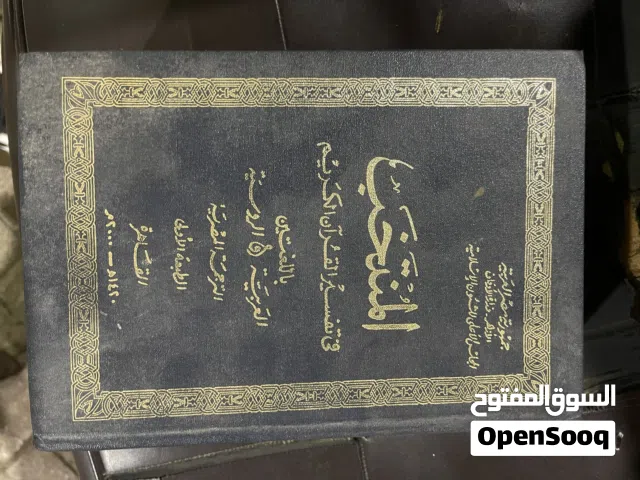 جمهورية مصر العربية
وزارة الأوقاف
المجلس الأعلى للشئون الإسلامية
المنتخب
في تفسير القرآن الكريم
باللغتين
العربية و الروسية
الترجمة المصرية
الطبعة الأولى
القاهرة
١٤٢٠هـ - ٢٠٠٠م
السوق المفتوح
OpenSooq